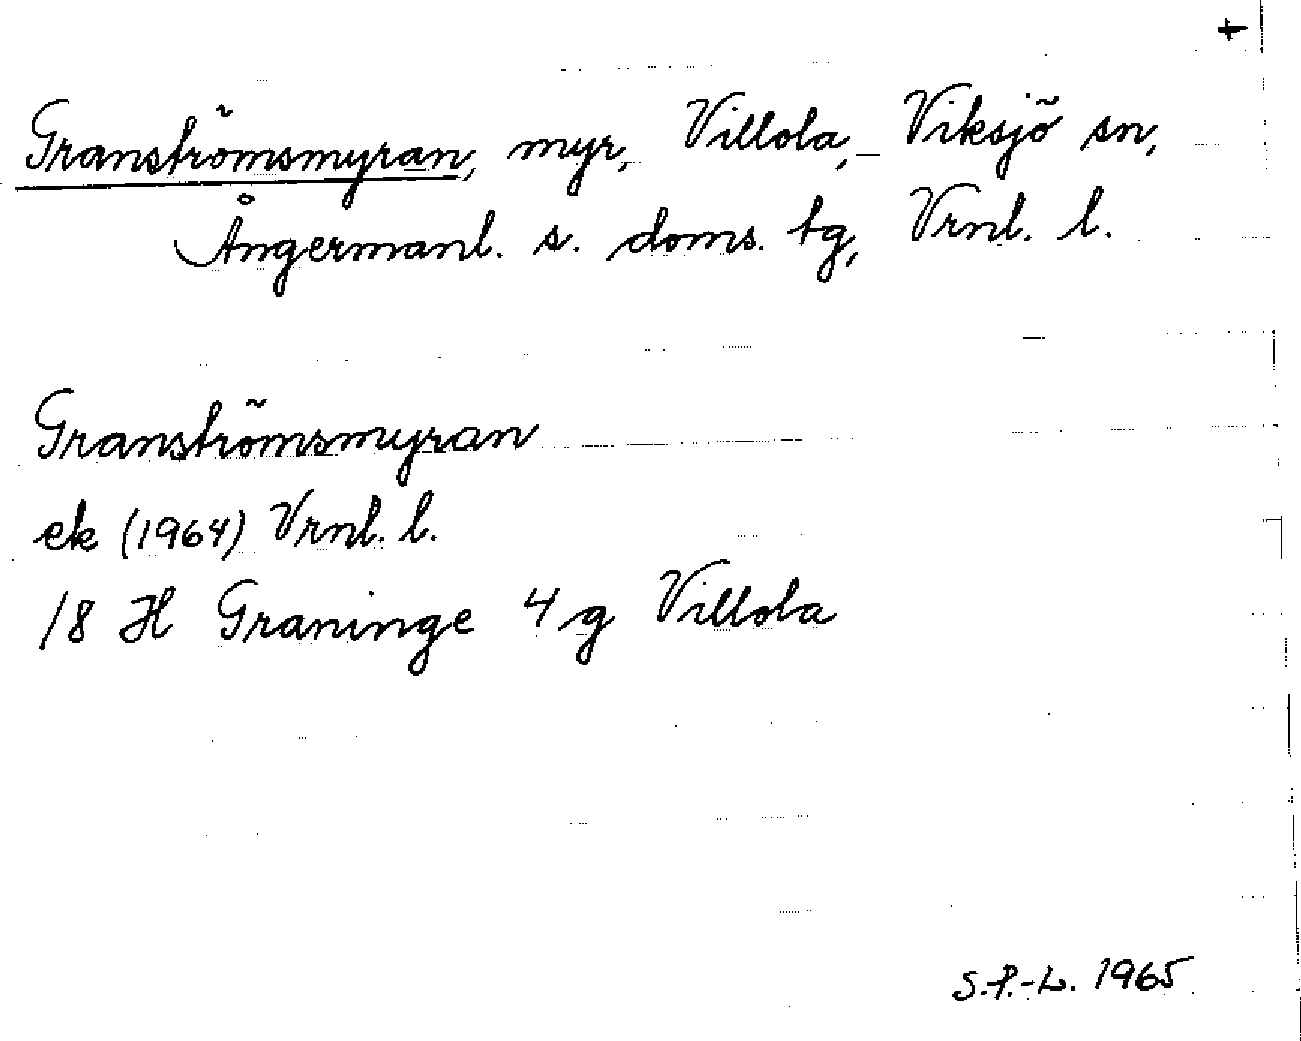 +
Granströmsmyran, myr, Villola, Viksjö sn,
Ångermanl. s. doms. tg, Vrnl. l.
Granströmsmyran
ek (1964) Vrnl. l.
18 H Graninge 4 g Villola
S.P.-L. 1965